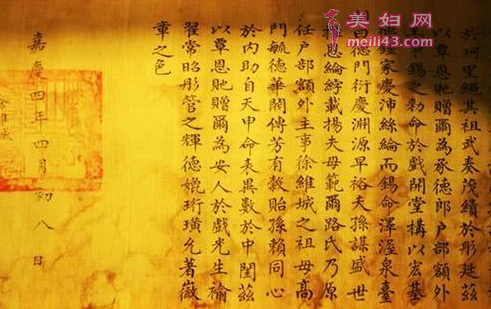 美妇网
meili43.com
於珂里繩其祖武奏淺績於彤廷茲
以覃恩貤贈爾為承德郎戶部額外
錫之勅命於戲開堂構以宏基
家慶沛絲綸而錫命澤渥泉臺
曰德門衍慶淵源早裕夫孫謀盛世
恩綸綍載揚夫母範爾路氏乃原
任戶部額外主事徐維城之祖母高
門毓德華閥傳芳有穀貽孫賴同心
於內助自天申命表異數於中閨茲
以覃恩貤贈爾為安人於戲光生褕
翟常昭彤管之輝德媲珩璜允著徽
章之色
嘉慶四年四月初八日